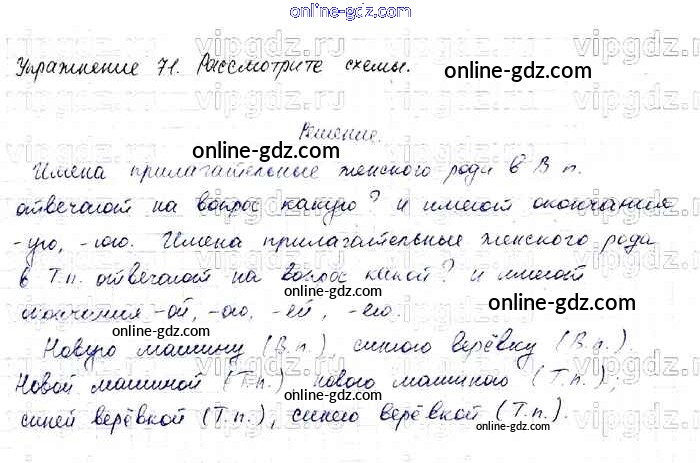 online-gdz.com
Упражнение 71. Рассмотрите схемы.
online-gdz.com
Решение.
online-gdz.com
Имена прилагательные женского рода в В п.
отвечают на вопрос какую? и имеют окончания
-ую, -юю. Имена прилагательные женского рода
в Т.п. отвечают на вопрос какой? и имеют
online-gdz.com
окончания -ой, -ою, -ей, -ею.
online-gdz.com
online-gdz.com
Новую машину (В.п.), синюю верёвку (В.п.).
Новой машиной (Т.п.) новою машиною (Т.п.),
синей верёвкой (Т.п.), синею верёвкой (Т.п.).
online-gdz.com
online-gdz.com